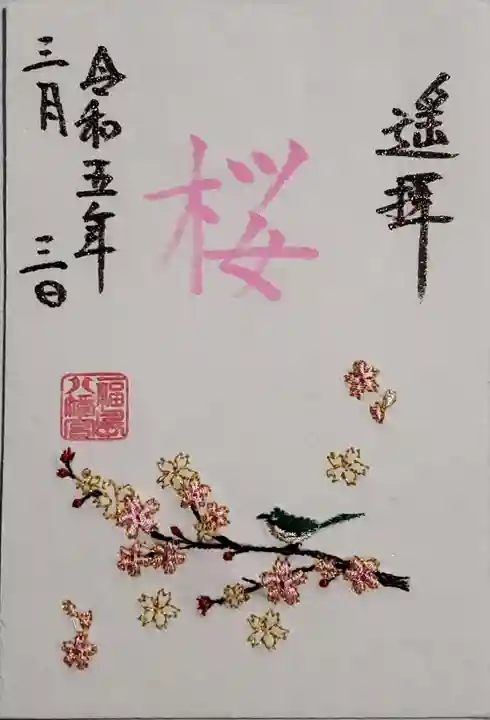 遥拝
桜
令和五年
三月 三日
福島
八幡宮